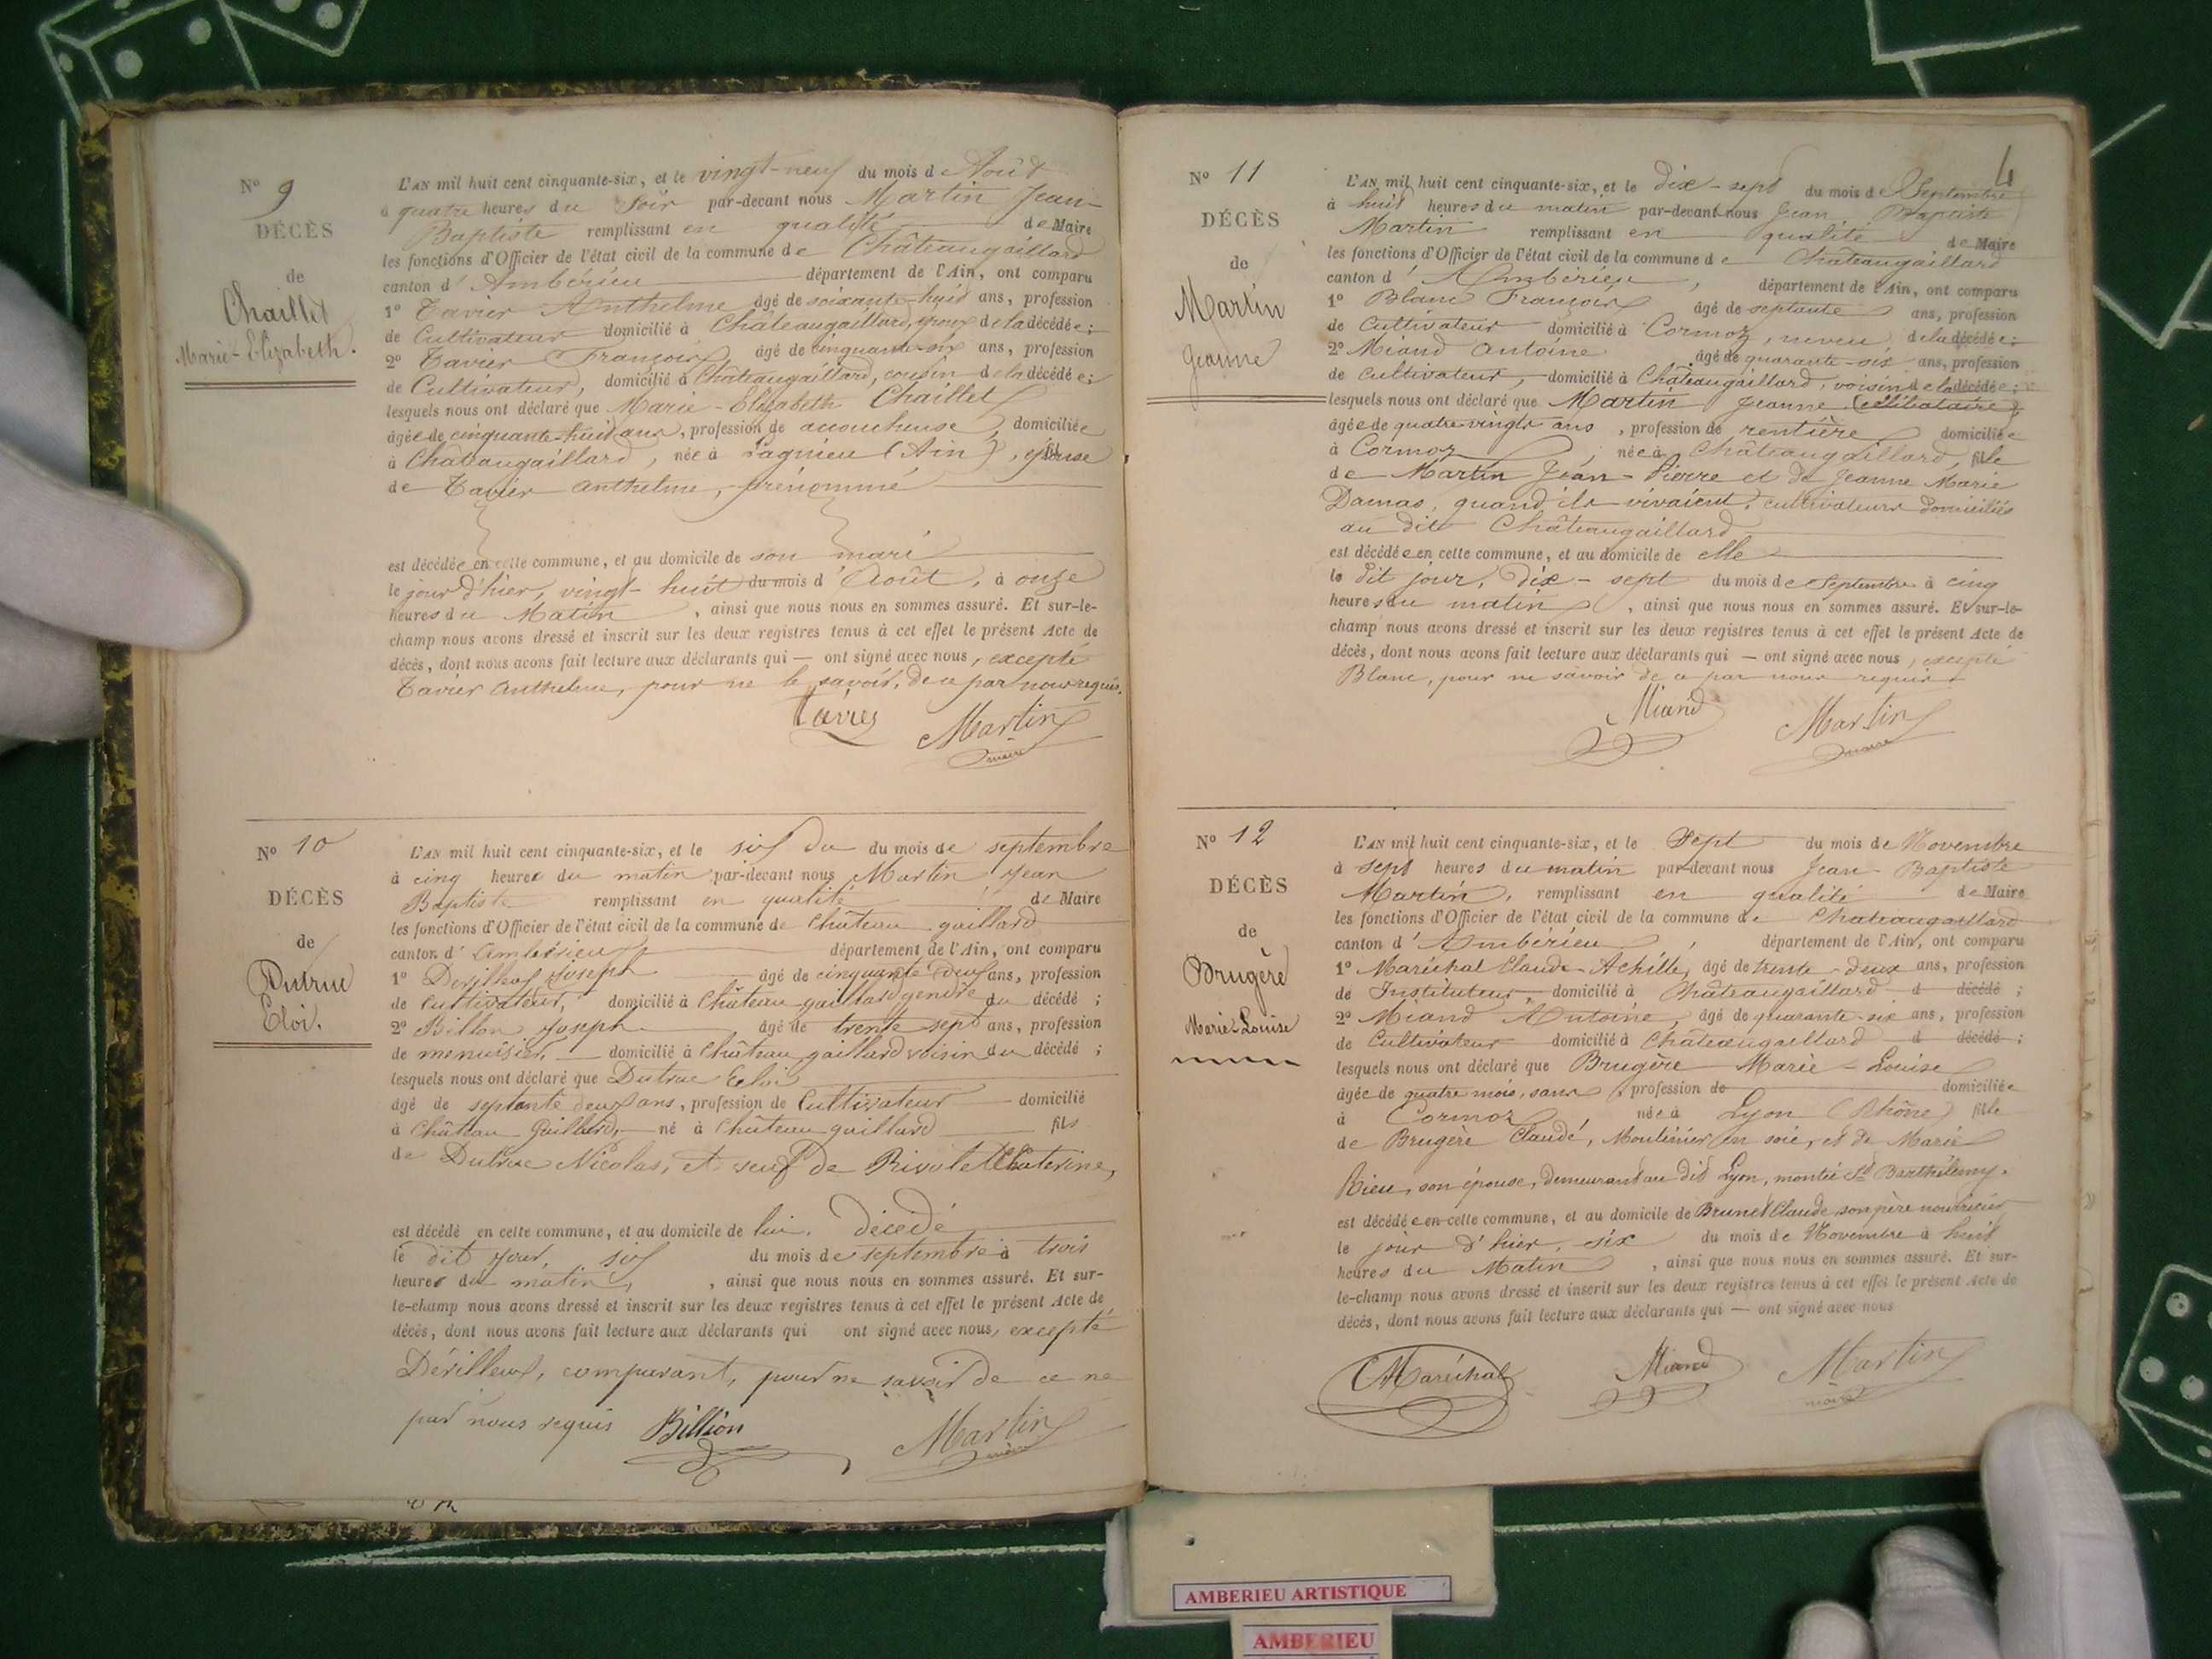 N° 9
DÉCÈS
de
Chaillet
Marie-Elizabeth.
L'AN mil huit cent cinquante-six, et le vingt-neuf du mois d'Août
à quatre heures du soir par-devant nous Martin Jean-
Baptiste remplissant en qualité de Maire
les fonctions d'Officier de l'état civil de la commune de Châteaugaillard
canton d'Ambérieu département de l'Ain, ont comparu
1° Tavier Anthelme âgé de soixante-huit ans, profession
de Cultivateur domicilié à Châteaugaillard, époux de la décédée;
2° Tavier François, âgé de cinquante-six ans, profession
de Cultivateur, domicilié à Châteaugaillard, cousin de la décédée;
lesquels nous ont déclaré que Marie-Elizabeth Chaillet
âgée de cinquante-huit ans, profession de accoucheuse, domiciliée
à Châteaugaillard, née à Lagnieu (Ain), épouse
de Tavier Anthelme, prénommé
est décédée en cette commune, et au domicile de son mari
le jour d'hier, vingt-huit du mois d'Août, à onze
heures du Matin, ainsi que nous nous en sommes assuré. Et sur-le-
champ nous avons dressé et inscrit sur les deux registres tenus à cet effet le présent Acte de
décès, dont nous avons fait lecture aux déclarants qui — ont signé avec nous, excepté
Tavier Anthelme, pour ne le savoir, de ce par nous requis.
Martin
maire
N° 10
DÉCÈS
de
Dutruc
Eloi.
L'AN mil huit cent cinquante-six, et le six du du mois de septembre
à cinq heures du matin par-devant nous Martin Jean
Baptiste remplissant en qualité de Maire
les fonctions d'Officier de l'état civil de la commune de Château gaillard
canton d'ambérieu département de l'Ain, ont comparu
1° Derilleux Joseph âgé de cinquante deux ans, profession
de Cultivateur, domicilié à Château gaillard gendre du décédé;
2° Billon Joseph âgé de trente sept ans, profession
de menuisier, domicilié à Château gaillard voisin du décédé;
lesquels nous ont déclaré que Dutruc Eloi
âgé de septante deux ans, profession de Cultivateur domicilié
à Château Gaillard, né à Château gaillard fils
de Dutruc Nicolas, et veuf de Rivolet Catherine,
est décédé en cette commune, et au domicile de lui. décédé
le dit jour, six du mois de septembre à trois
heures du matin, , ainsi que nous nous en sommes assuré. Et sur-
le-champ nous avons dressé et inscrit sur les deux registres tenus à cet effet le présent Acte de
décès, dont nous avons fait lecture aux déclarants qui ont signé avec nous, excepté
Dérilleux, comparant, pour ne savoir de ce ne
par nous requis Billion Martin
maire
4
N° 11
DÉCÈS
de
Martin
Jeanne
L'AN mil huit cent cinquante-six, et le dix-sept du mois de Septembre
à huit heures du matin par-devant nous Jean Baptiste
Martin remplissant en qualité de Maire
les fonctions d'Officier de l'état civil de la commune de Châteaugaillard
canton d'Ambérieu, département de l'Ain, ont comparu
1° Blanc François âgé de septante ans, profession
de Cultivateur domicilié à Cormoz, neveu de la décédée;
2° Miand Antoine âgé de quarante-six ans, profession
de Cultivateur, domicilié à Châteaugaillard, voisin de la décédée;
lesquels nous ont déclaré que Martin Jeanne (célibataire)
âgée de quatre-vingts ans, profession de rentière domiciliée
à Cormoz, née à Châteaugaillard, fille
de Martin Jean-Pierre et de Jeanne Marie
Damas, quand ils vivaient, cultivateurs domiciliés
au dit Châteaugaillard
est décédée en cette commune, et au domicile de elle
le dit jour, dix-sept du mois de Septembre à cinq
heures du matin, ainsi que nous nous en sommes assuré. Et sur-le-
champ nous avons dressé et inscrit sur les deux registres tenus à cet effet le présent Acte de
décès, dont nous avons fait lecture aux déclarants qui — ont signé avec nous, excepté
Blanc, pour ne savoir de ce par nous requis
Miand Martin
maire
N° 12
DÉCÈS
de
Brugère
Marie-Louise
L'AN mil huit cent cinquante-six, et le Sept du mois de Novembre
à sept heures du matin par-devant nous Jean-Baptiste
Martin, remplissant en qualité de Maire
les fonctions d'Officier de l'état civil de la commune de Chateaugaillard
canton d'Ambérieu, département de l'Ain, ont comparu
1° Maréchal Claude-Achille, âgé de trente-deux ans, profession
de Instituteur, domicilié à Châteaugaillard d décédé;
2° Miand Antoine, âgé de quarante-six ans, profession
de Cultivateur domicilié à Châteaugaillard d décédé;
lesquels nous ont déclaré que Brugère Marie-Louise
âgée de quatre mois, sans profession de domiciliée
à Cormoz, née à Lyon (Rhône) fille
de Brugère Claude, Moulinier en soie, et de Marie
Rieu, son épouse, demeurant au dit Lyon, montée St Barthélemy.
est décédée en cette commune, et au domicile de Brunet Claude son père nourricier
le jour d'hier, six du mois de Novembre à huit
heures du Matin, ainsi que nous nous en sommes assuré. Et sur-
le-champ nous avons dressé et inscrit sur les deux registres tenus à cet effet le présent Acte de
décès, dont nous avons fait lecture aux déclarants qui — ont signé avec nous
Maréchal Miand Martin
maire
AMBERIEU ARTISTIQUE
AMBERIEU